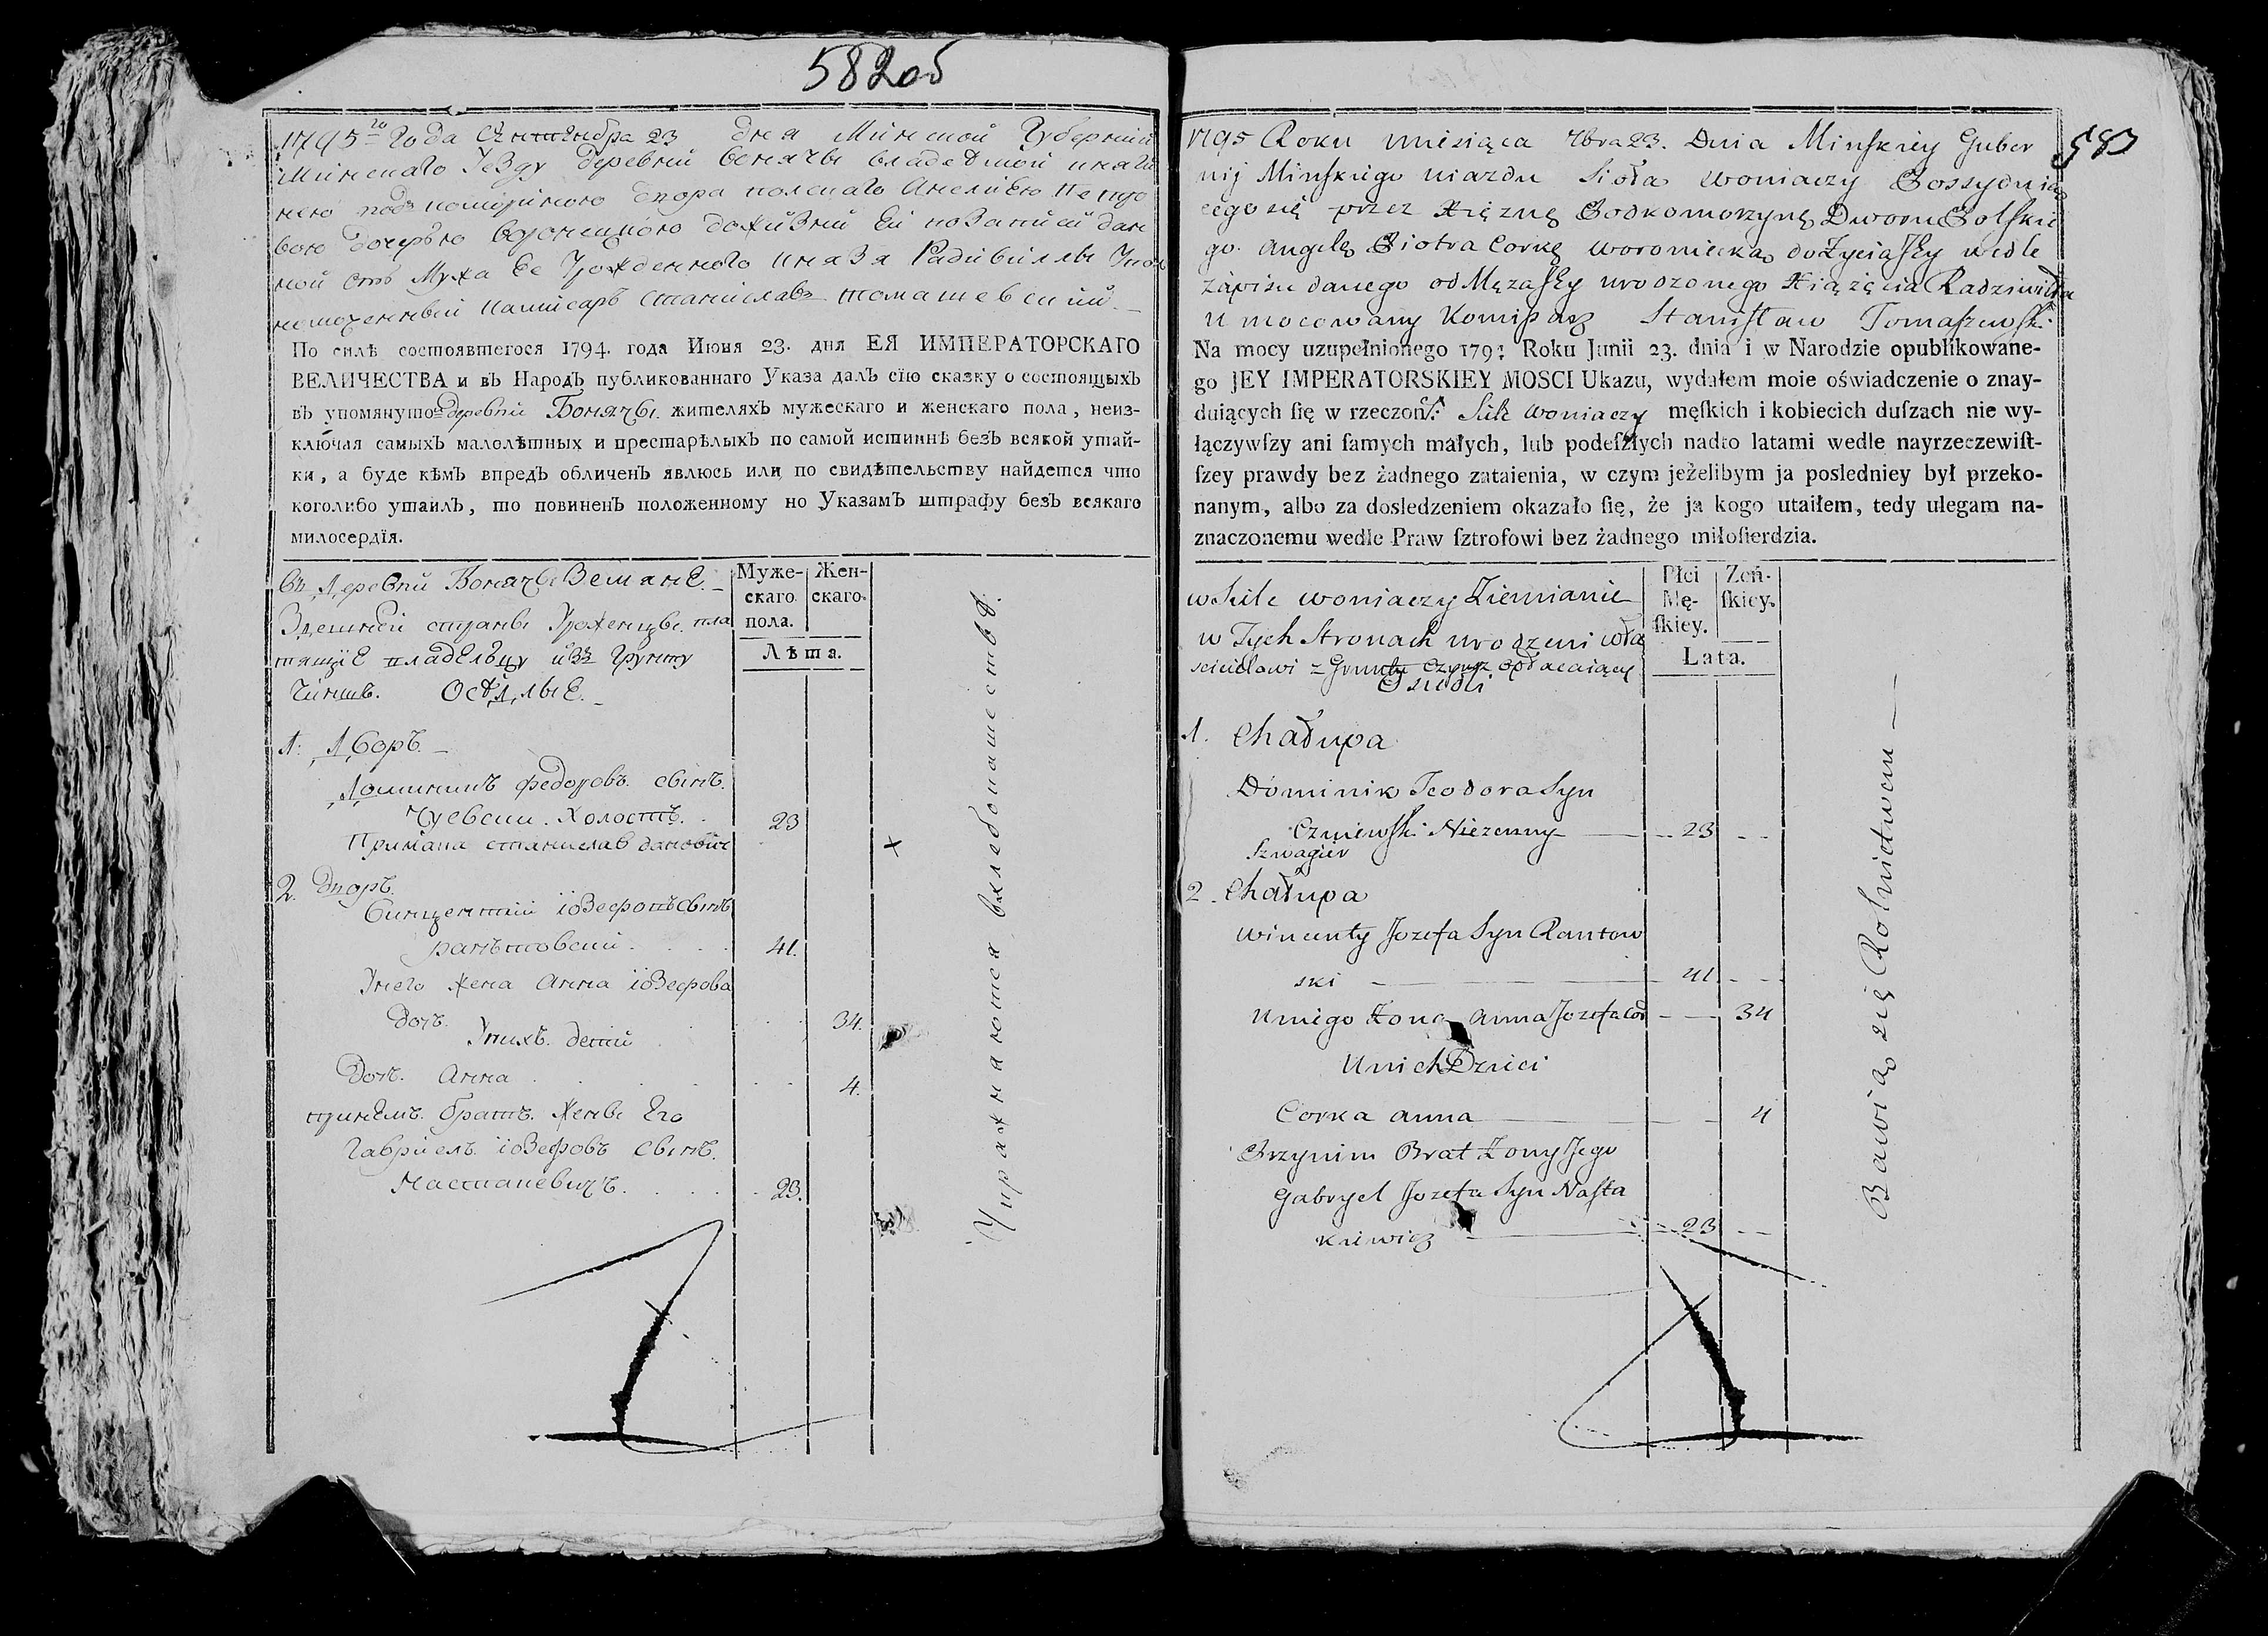 582об
1795 го Года Сентября 23 дня Минской Губернии
Минскаго уезду деревни Вонячи владеемой княги
нею подкомориною двора полскаго Анелиею Петро
вою дочерью Воронецкою дожизний Ей по записи дан
ной отъ Мужа Ее Урожденного Князя Радивиллы Упол
номоченный Камисаръ Станиславъ Томашевский
По силѣ состоявшегося 1794. года Июня 23. дня ЕЯ ИМПЕРАТОРСКАГО
ВЕЛИЧЕСТВА и въ Народъ публикованнаго Указа далъ сїю сказку о состоящыхъ
въ упомянутой деревни Вонячы. жителяхъ мужескаго и женскаго пола, неиз-
ключая самыхъ малолѣтныхъ и престарѣлыхъ по самой истиннѣ безъ всякой утай-
ки, а буде кѣмъ впредь обличенъ явлюсь или по свидѣтельству найдется что
коголибо утаилъ, то повиненъ положенному но Указамъ штрафу безъ всякаго
милосердїя.
Въ Деревни Вонячы Земяне.
Здешней страны Уроженцы. пла
тящие владельцу изъ грунту
Чиншъ. Оседлые.
Муже-
скаго
пола.
Жен-
скаго.
Лѣта.
1. Дворъ.
Доминикъ Федоровъ сынъ.
Чуевски. Холостъ. 23
Примака Станислав данович
2. Дворъ.
Винцентий Иозефовъ сынъ
рантовский. 41.
У него жена Анна Иозефова
дочь. 34.
У нихъ дети
дочь. Анна 4.
при нем братъ жены Его
Гавриелъ Иозефовъ сынъ.
Настакевичъ. 23.
Упражнаются хлебопашествѣ.
583
1795 Roku miesiąca 7bra 23. Dnia Minskiey Guber
nij Minskiego uiazdu Sioła Woniaczy Possyduią
cego się przez Xiężnę Podkomorzynę Dworu Polskie
go Angelę Piotra Corkę Woroniecką dożyciaſky wedle
zapisu danego od Mężaſky urodzonego Xiążęcia Radziwiłła
Umocowany Komiſarz Staniſław Tomaſzewſki
Na mocy uzupełnionego 1794 Roku Junii 23. dnia i w Narodzie opublikowane-
go JEY IMPERATORSKIEY MOSCI Ukazu, wydałem moie oświadczenie o znay-
duiących ſię w rzeczoney Siele Woniaczy męſkich i kobiecich duſzach nie wy-
łączywſzy ani ſamych małych, lub podeſzłych nadto latami wedle nayrzeczewiſt-
ſzey prawdy bez żadnego zataienia, w czym jeżelibym ja posledniey był przeko-
nanym, albo za dosledzeniem okazało ſię, że ja kogo utaiłem, tedy ulegam na-
znaczonemu wedle Praw ſztrofowi bez żadnego miłoſierdzia.
w Siele Woniaczy Ziemianie
w Tych Stronach urodzeni wła
scicielowi z Gruntu czynsz opłacaiący
Osiedli
Płci
Mę-
ſkiey.
Zeń-
ſkiey.
Lata.
1. Chałupa
Dominik Teodora Syn
Czuiewſki Nieżenny 23
Szwagier
2. Chałupa
Wincenty Jozefa Syn Rantow
ski 41
U niego Zona Anna Jozefa Cor 34
U nich Dzieci
Corka Anna 4
Przynim Brat Zony Jego
Gabryel Jozefa Syn Naſta
kiewicz 23
Bawią się Rolnictwem